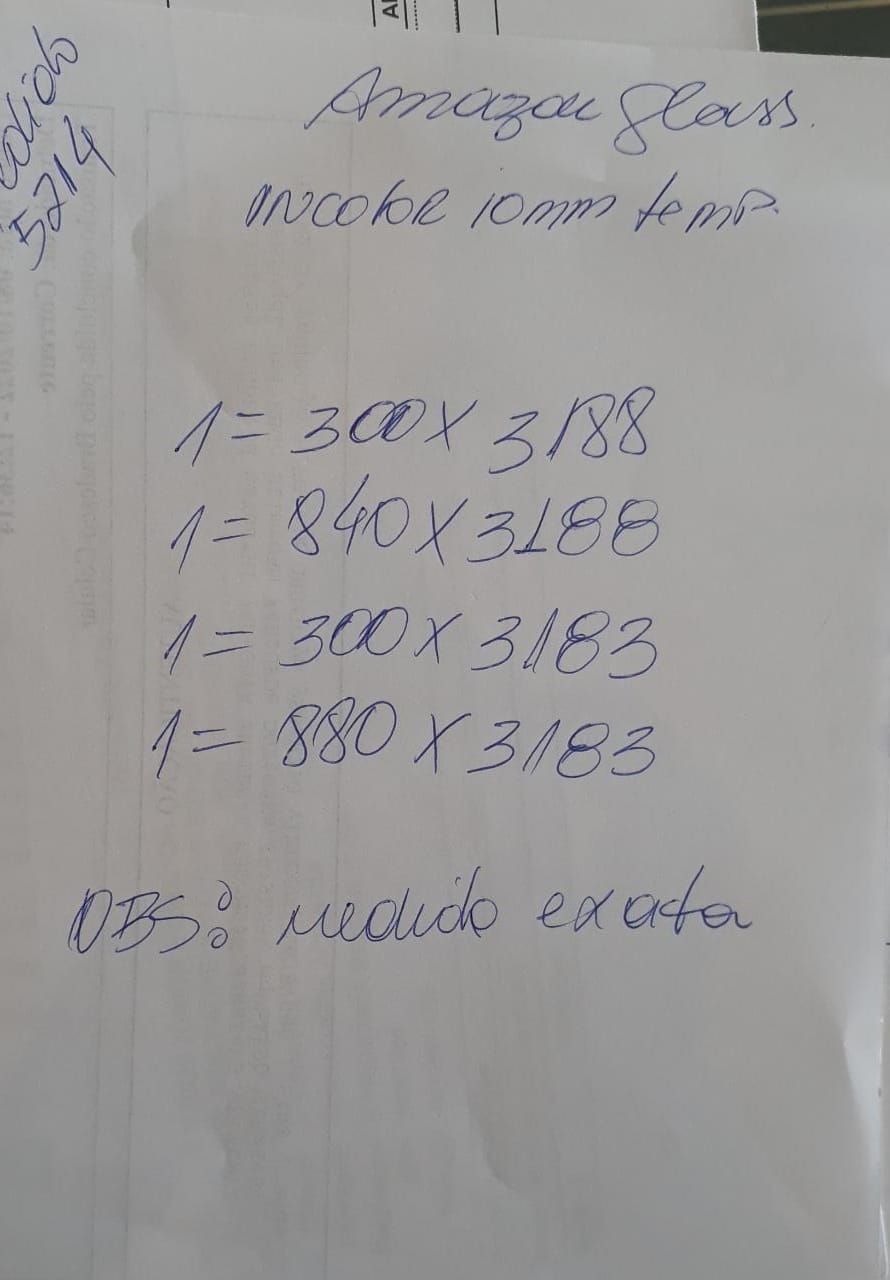 5214
Amazon Glass.
INCOLOR 10mm temp.
1 = 300 X 3188
1 = 840 X 3188
1 = 300 X 3183
1 = 880 X 3183
OBS: medida exata